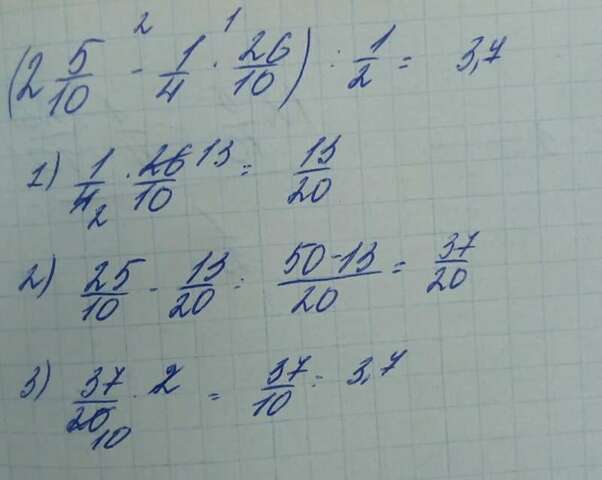 2 1
(2 5/10 - 1/4 · 26/10) : 1/2 = 3,7
1) 1/4 2 · 26/10 13 = 13/20
2) 25/10 - 13/20 = 50-13/20 = 37/20
3) 37/20 10 · 2 = 37/10 = 3,7